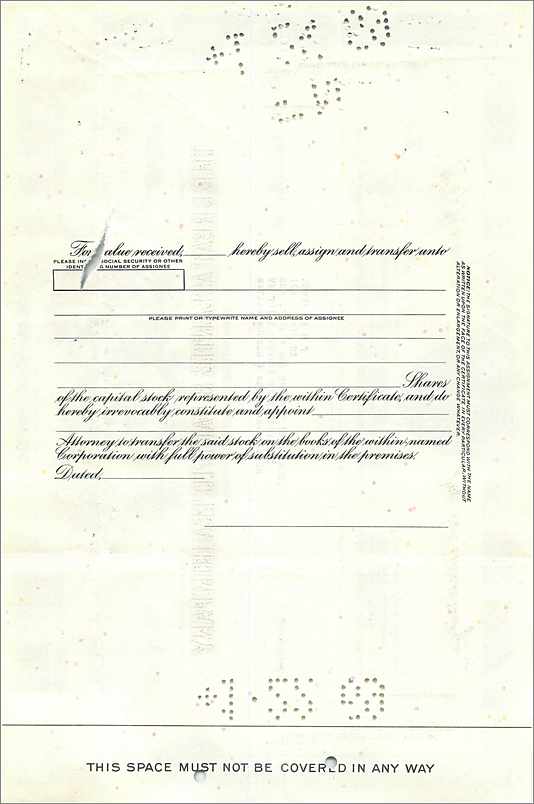 For alue received, hereby sell, assign and transfer unto
PLEASE IN SOCIAL SECURITY OR OTHER
IDENT G NUMBER OF ASSIGNEE
PLEASE PRINT OR TYPEWRITE NAME AND ADDRESS OF ASSIGNEE
Shares
of the capital stock represented by the within Certificate, and do
hereby irrevocably constitute and appoint
Attorney to transfer the said stock on the books of the within named
Corporation with full power of substitution in the premises.
Dated,
NOTICE: THE SIGNATURE TO THIS ASSIGNMENT MUST CORRESPOND WITH THE NAME
AS WRITTEN UPON THE FACE OF THE CERTIFICATE, IN EVERY PARTICULAR, WITHOUT
ALTERATION OR ENLARGEMENT, OR ANY CHANGE WHATEVER.
THIS SPACE MUST NOT BE COVERED IN ANY WAY